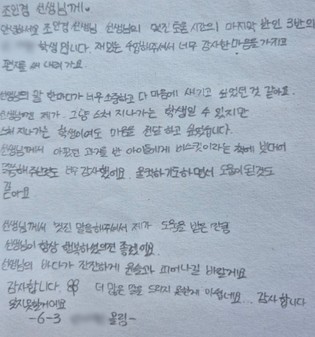 조인경 선생님께♡
안녕하세요 조인경 선생님 선생님의 멋진 도움 시간의 마지막 반인 3반의
학생입니다. 재밌는 수업해주셔서 너무 감사한 마음을 가지고
편지를 써 내려가요.
선생님의 말 한마디가 너무 소중하고 다 마음에 새기고 싶었던 것 같아요.
선생님께는 제가 그냥 스쳐 지나가는 학생일 수 있지만
스쳐 지나가는 학생이여도 마음을 전달하고 싶었습니다.
선생님께서 아팠던 과거를 반 아이들에게 비스킷이라는 책에 빗대어
말해주셔서도 너무 감사했어요. 울컥하기도하면서 도움이 된것도
같아요
선생님께서 멋진 말씀해주셔서 제가 도움을 받은 만큼
선생님이 항상 행복하셨으면 좋겠어요.
선생님의 바다가 잔잔하게 윤슬과 피어나길 바랄게요
감사합니다. 더 많은 말을 드리지 못한게 아쉽네요... 감사합니다
잊지못할거에요
-6-3 올림-